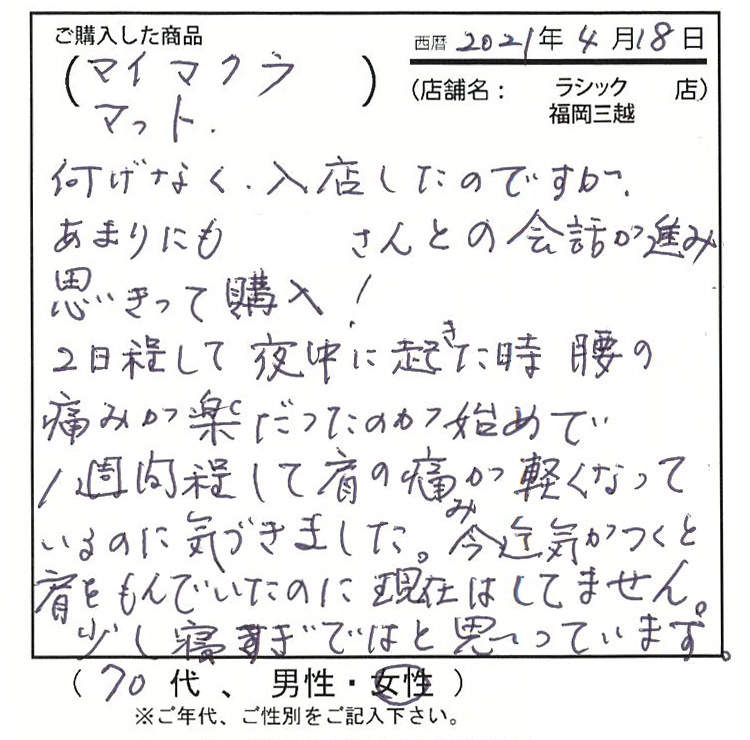 ご購入した商品
西暦 2021年 4月18日
(マイマクラ
マット.)
(店舗名: ラシック 福岡三越 店)
何げなく、入店したのですが、
あまりにも さんとの会話が進み
思いきって購入!
2日程して夜中に起きた時 腰の
痛みが楽だったのが始めで
1週間程して肩の痛みが軽くなって
いるのに気づきました。今迄気がつくと
肩をもんでいたのに現在はしてません。
少し寝すぎではと思っています。
(70代、男性・女性)
※ご年代、ご性別をご記入下さい。